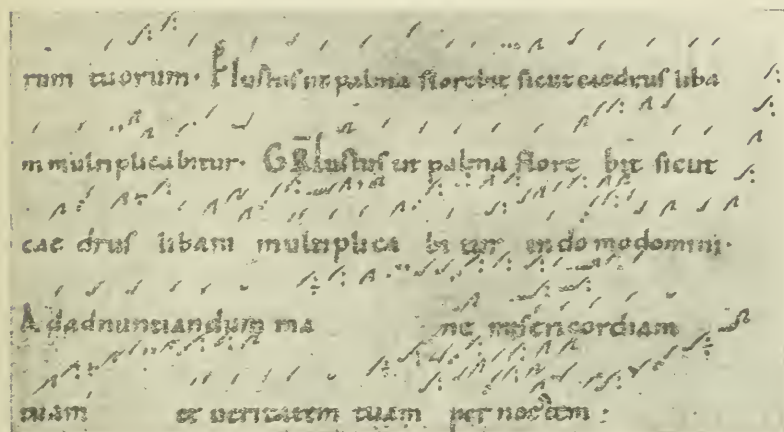 rum tuorum. Ps Iustus ut palma florebit sicut caedrus liba
ni multiplicabitur. GR Iustus ut palma flore bit sicut
cae drus libani multiplica bi tur in domo domini.
Ad adnuntiandum ma ne misericordiam
tuam et veritatem tuam per noctem: